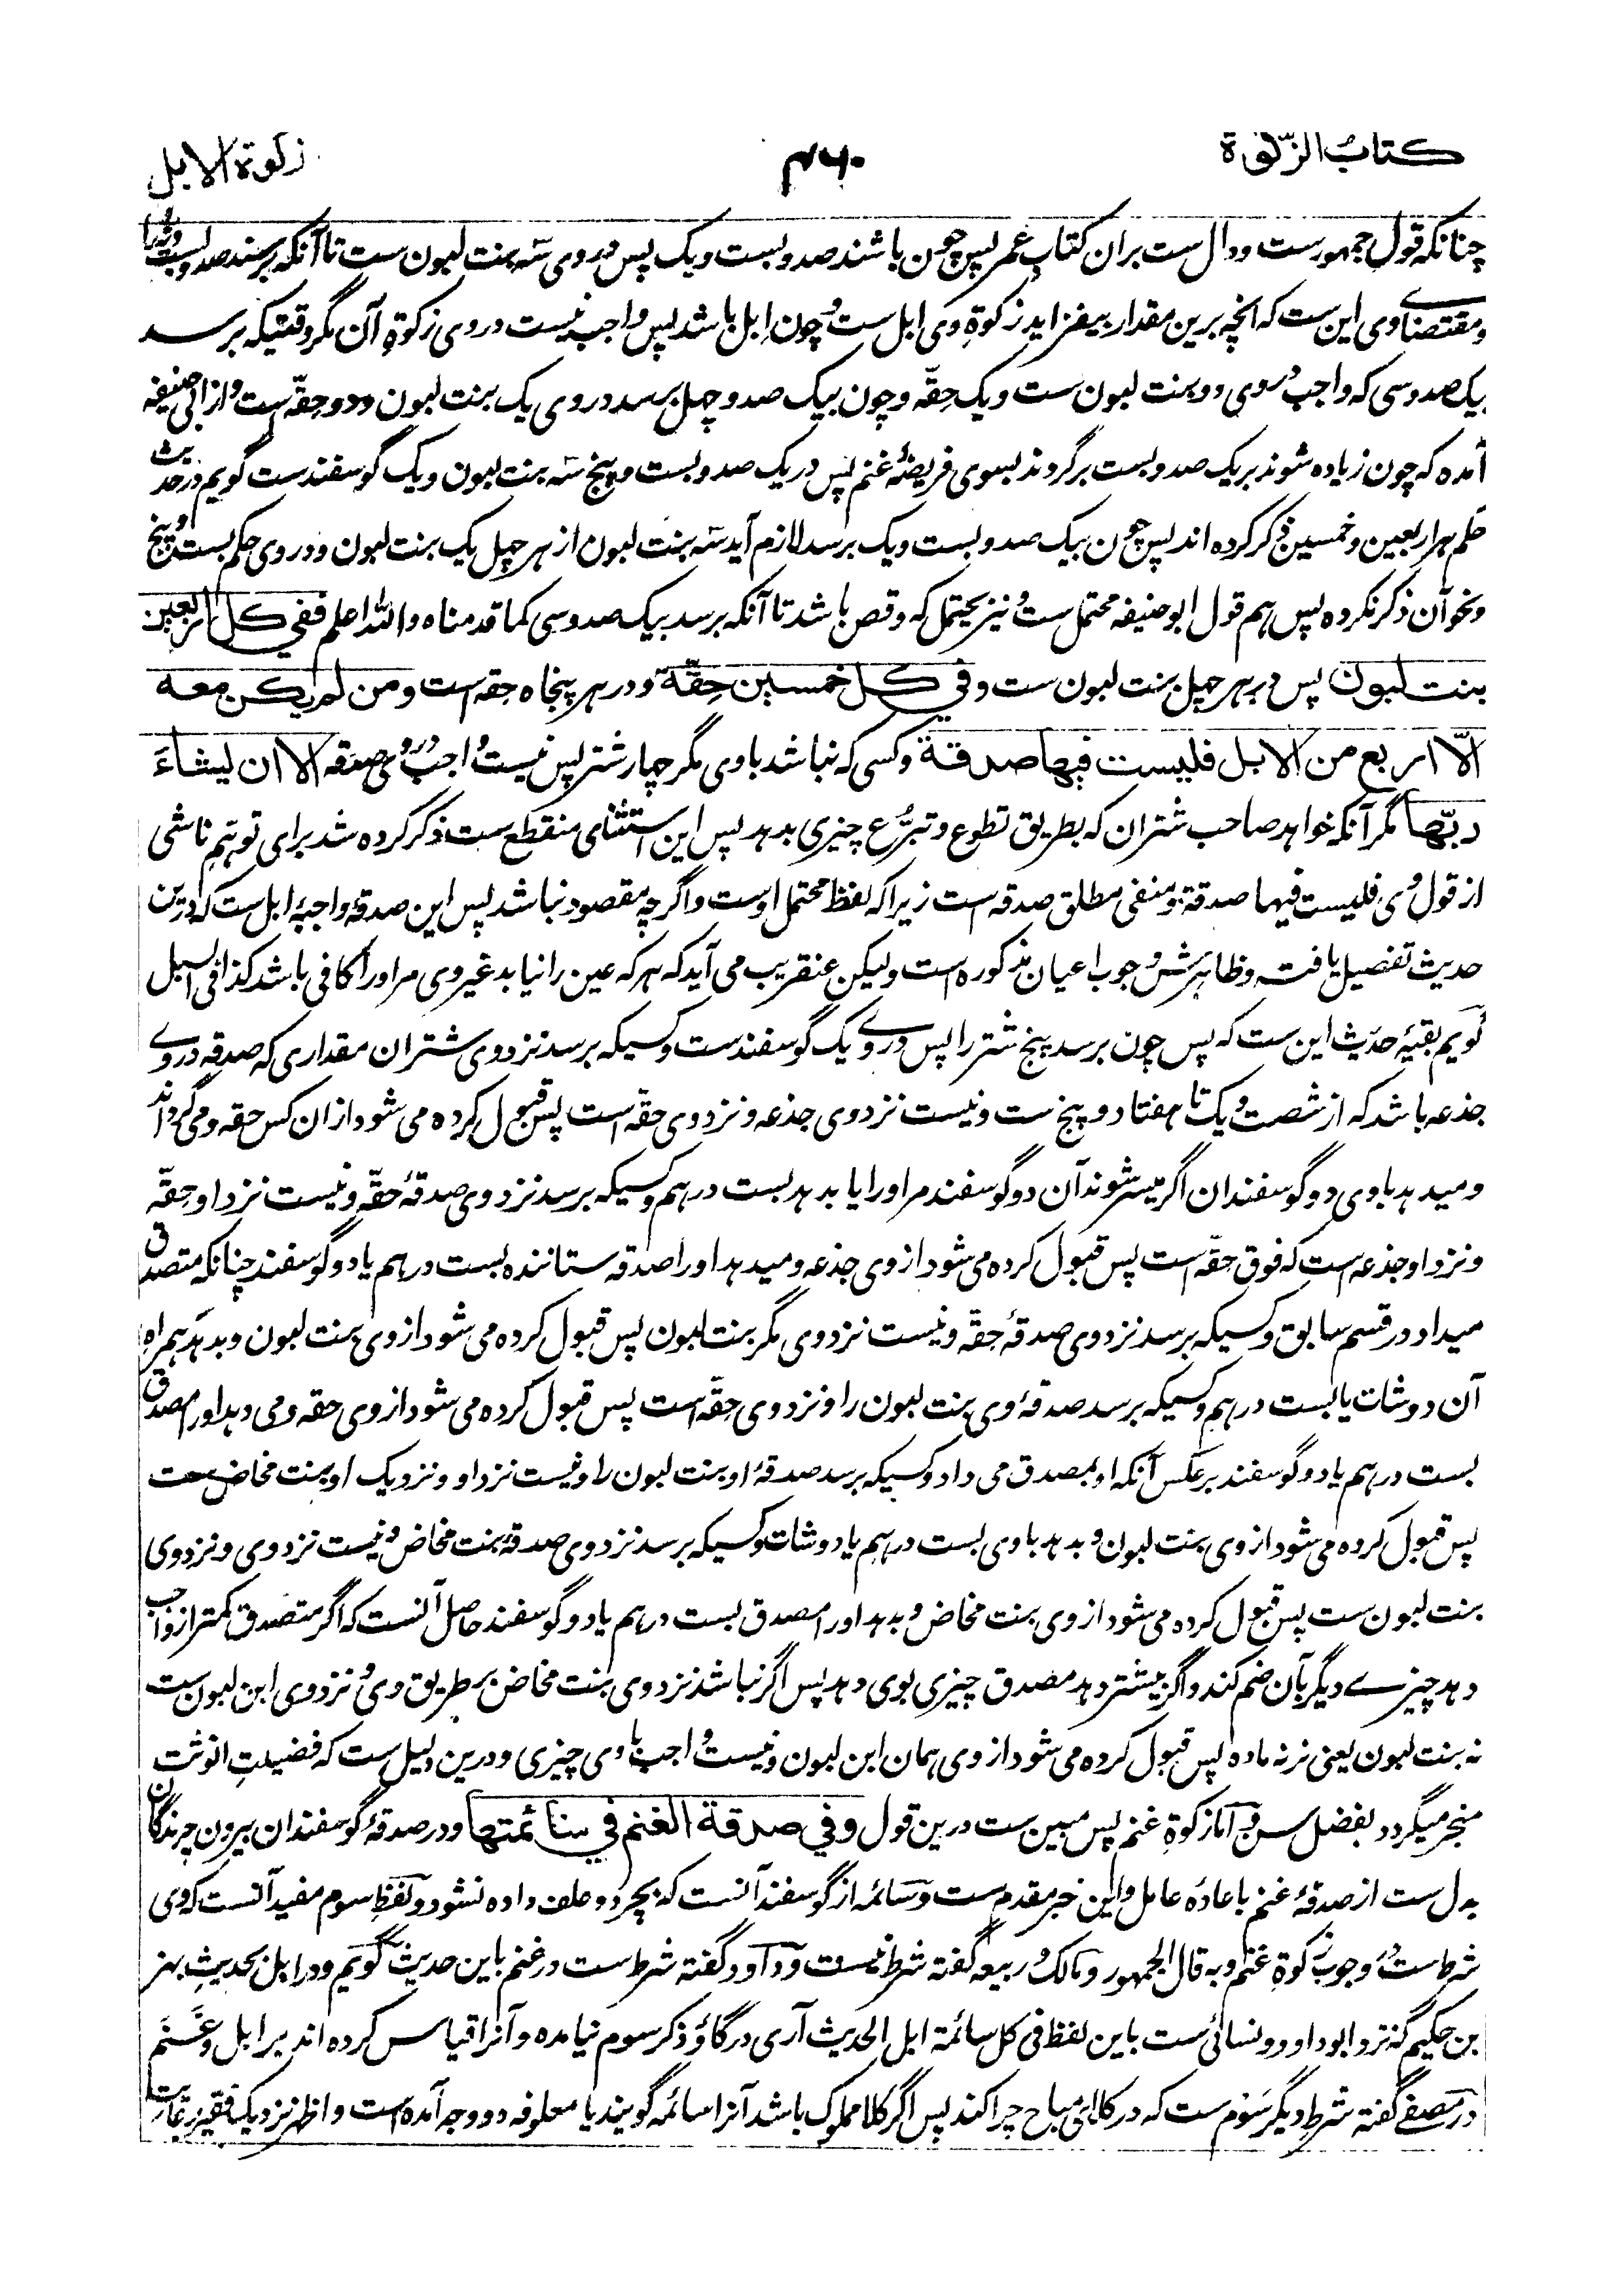 کتابُ الزّکوٰة
۴۶۰
زکوة الابل
چنانکه قول جمهورست و دال ست بران کتاب عمر پس چون باشند صد و بست و یک پس در وی سه بنت لبون ست تا آنکه برسند صد و بست و نه را
و مقتضای وی این ست که انچه برین مقدار بیفزاید زکوةِ وی ابل ست و چون اِبل باشد پس واجب نیست در وی زکوةِ آن مگر وقتیکه برسد
بیک صد و سی که واجب در وی دو بنت لبون ست و یک حِقّه و چون بیک صد و چهل برسد در وی یک بنت لبون و دو حِقّه است و از ابی حنیفه
آمده که چون زیاده شوند بر یک صد و بست برگردند بسوی فریضهٔ غنم پس در یک صد و بست و پنج سه بنت لبون و یک گوسفندست گویم در حدیث
حکم هر اربعین و خمسین ذکر کرده اند پس چون بیک صد و بست و یک برسد لازم آید سه بنت لبون از هر چهل یک بنت لبون و در وی حکم بست و پنج
و نحو آن ذکر نکرده پس هم قول ابو حنیفه محتمل ست و نیز یحتمل که وقص باشد تا آنکه برسد بیک صد و سی کما قدمناه والله اعلم ففی کل اربعین
بنت لبون پس در هر چهل بنت لبون ست وفی کل خمسین حِقّة و در هر پنجاه حقه است ومن لم یکن معه
الّا اربع من الابل فلیست فیها صدقة و کسی که نباشد با وی مگر چهار شتر پس نیست واجب در وی صدقه الا ان یشاءَ
ربّها مگر آنکه خواهد صاحب شتران که بطریق تطوع و تبرُّع چیزی بدهد پس این استثنای منقطع ست ذکر کرده شد برای توهّمِ ناشی
از قول وی فلیست فیها صدقة و منفی مطلق صدقه است زیرا که لفظ محتمل اوست و اگرچه مقصود نباشد پس این صدقهٔ واجبهٔ ابل ست که درین
حدیث تفصیل یافت و ظاهرش وجوب اعیان مذکوره است ولیکن عنقریب می آید که هر که عین را نیابد غیر وی مر او را کافی باشد کذا فی السبل
گویم بقیهٔ حدیث این ست که پس چون برسد پنج شتر را پس در وے یک گوسفندست و کسیکه برسد نزد وی شتران مقداری که صدقه در وے
جذعه باشد که از شصت و یک تا هفتاد و پنج ست و نیست نزد وی جذعه و نزد وی حقّه است پس قبول کرده می شود ازان کس حقه و می گرداند
و میدهد با وی دو گوسفندان اگر میسر شوند آن دو گوسفند مر او را یا بدهد بست درهم و کسیکه برسد نزد وی صدقهٔ حقّه و نیست نزد او حِقّه
و نزد او جذعه است که فوق حِقّه است پس قبول کرده می شود از وی جذعه و میدهد او را صدقه ستاننده بست درهم یا دو گوسفند چنانکه متصدق
میداد در قسم سابق و کسیکه برسد نزد وی صدقهٔ حقّه و نیست نزد وی مگر بنت لبون پس قبول کرده می شود از وی بنت لبون و بدهد همراهِ
آن دو شات یا بست درهم و کسیکه برسد صدقهٔ وی بنت لبون را و نزد وی حِقّه است پس قبول کرده می شود از وی حقه و می دهد او را مصدق
بست درهم یا دو گوسفند برعکس آنکه او بمصدق می داد و کسیکه برسد صدقهٔ او بنت لبون را و نیست نزد او و نزدیک او بنت مخاض ست
پس قبول کرده می شود از وی بنت لبون و بدهد با وی بست درهم یا دو شات و کسیکه برسد نزد وی صدقهٔ بنت مخاض و نیست نزد وی و نزد وی
بنت لبون ست پس قبول کرده می شود از وی بنت مخاض و بدهد او را مصدق بست درهم یا دو گوسفند حاصل آنست که اگر متصدق کمتر از واجب
دهد چیزے دیگر بآن ضم کند و اگر بیشتر دهد مصدق چیزی بوی دهد پس اگر نباشد نزد وی بنت مخاض بر طریق وی و نزد وی ابن لبون ست
نه بنت لبون یعنی نر نه ماده پس قبول کرده می شود از وی همان ابن لبون و نیست واجب با وی چیزی و درین دلیل ست که فضیلتِ انوثت
منجبر میگردد بفضل سن و اما زکوةِ غنم پس مبین ست درین قول وفی صدقة الغنم فی سائمتها و در صدقهٔ گوسفندان بیرون چرندگان
بدل ست از صدقهٔ غنم باعادهٔ عامل و این خبر مقدم ست و سائمه از گوسفند آنست که بچرد و علف داده نشود و لفظِ سوم مفید آنست که وی
شرط ست در وجوب زکوةِ غنم و به قال الجمهور و مالک و ربیعه گفته شرط نیست و داود گفته شرط ست در غنم باین حدیث گویم و در ابل بحدیثِ بهز
بن حکیم که نزد ابو داود و نسائی ست باین لفظ فی کل سائمة ابل الحدیث آری در گاؤ ذکر سوم نیامده و آنرا قیاس کرده اند بر ابل و غنم
در مصفے گفته شرطِ دیگر سَوم ست که در کلاءِ مباح چرا کند پس اگر کلا مملوک باشد آنرا سائمه گویند یا معلوفه دو وجه آمده است و اظهر نزدیک فقیر رعایت